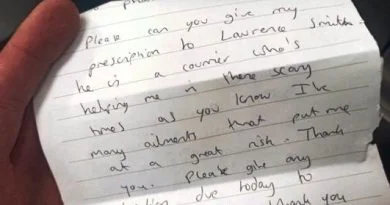 Please can you give my
prescription to Lawrence Smith -
he is a courier who's
helping me in these scary
times as you know I've
many ailments that put me
at a great risk. Thank
you. Please give any
due today to
thank you